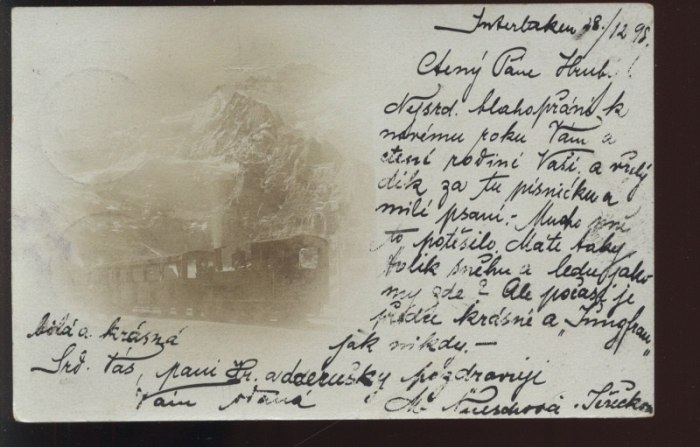 Interlaken 28./12 98.
Ctený Pane Hrubý!
Nejsrd. blahopřání k
novému roku Vám a
ctené rodině Vaší, a vřelý
dík za tu písničku a
milé psaní. - Mucho mě
to potěšilo. Máte taky
tolik sněhu a ledu jako
my zde? Ale počasí je
přece krásné a "Jungfrau"
bílá a krásná
jak nikdy. -
Srd. Vás, paní Hr. a pozdravuji
Vám oddaná
M.